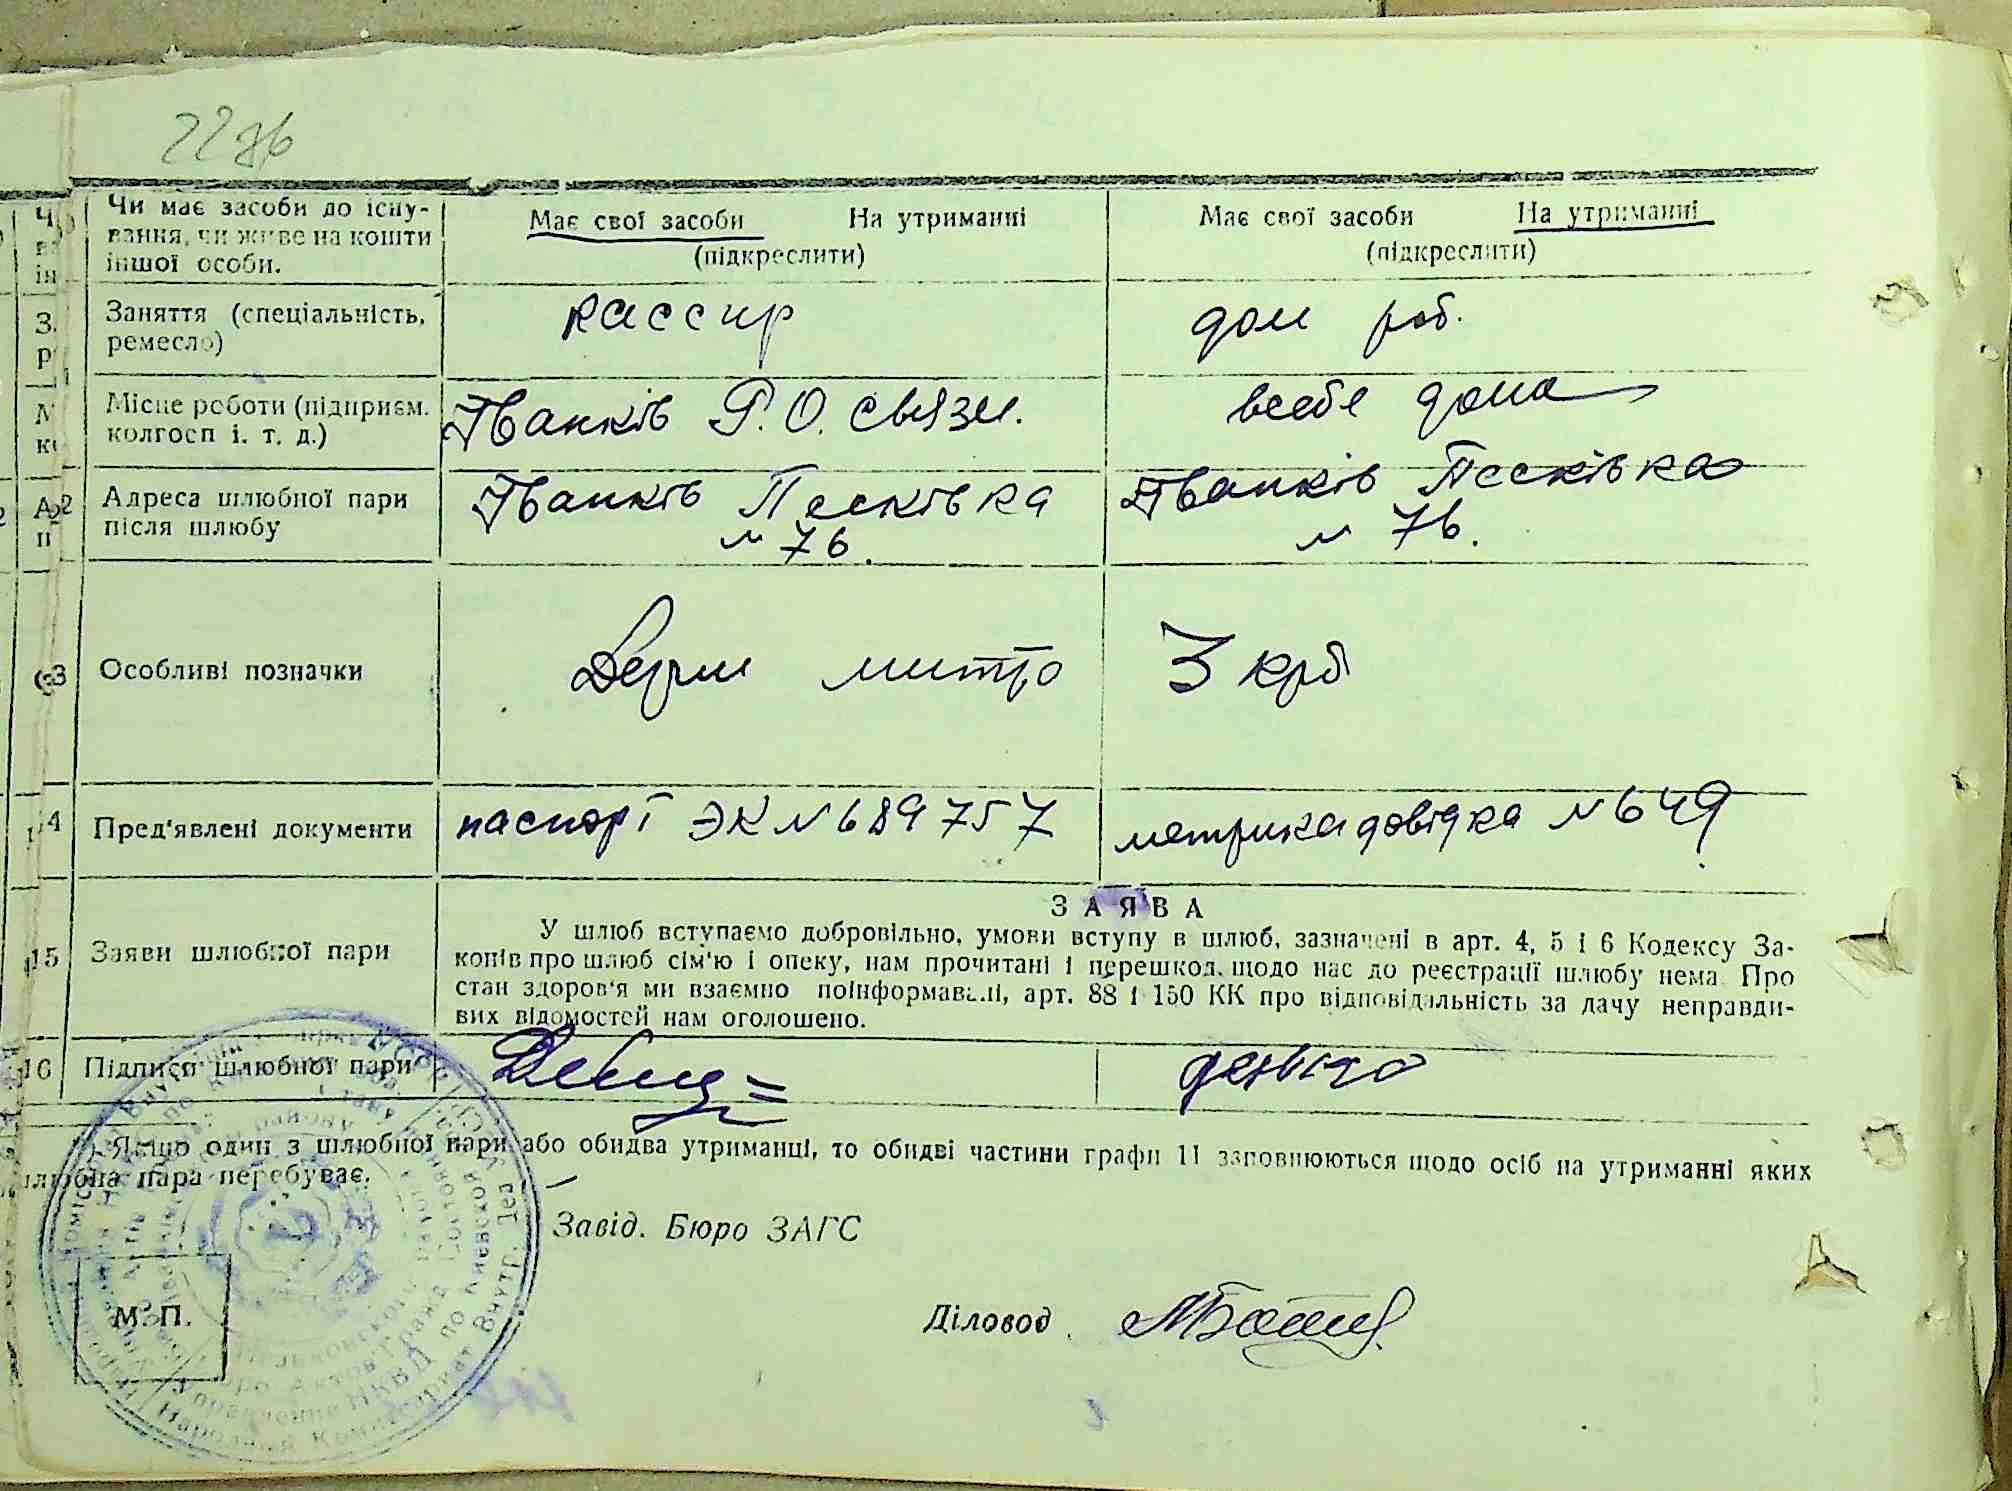 22 зв
Чи має засоби до існу-
вання, чи живе на кошти
іншої особи.
Має свої засоби На утриманні
(підкреслити)
Має свої засоби На утриманні
(підкреслити)
Заняття (спеціальність,
ремесло)
кассир
дом роб.
Місце роботи (підприєм.
колгосп і. т. д.)
Іванків Р.О. связи.
всебе дома
Адреса шлюбної пари
після шлюбу
Іванків Песківка
№ 76.
Іванків Песківка
№ 76.
Особливі позначки
Держ мито
3 крб
14 Пред'явлені документи
паспорт ЭК № 689757
метрика довідка № 649
15 Заяви шлюбної пари
ЗАЯВА
У шлюб вступаємо добровільно, умови вступу в шлюб, зазначені в арт. 4, 5 і 6 Кодексу За-
конів про шлюб сім'ю і опеку, нам прочитані і перешкод, щодо нас до реєстрації шлюбу нема. Про
стан здоров'я ми взаємно поінформавані, арт. 88 і 150 КК про відповідальність за дачу неправди-
вих відомостей нам оголошено.
16 Підписи шлюбної пари
Якщо один з шлюбної пари або обидва утриманці, то обидві частини графи 11 заповнюються щодо осіб на утриманні яких
шлюбна пара перебуває.
Завід. Бюро ЗАГС
М. П.
Діловод